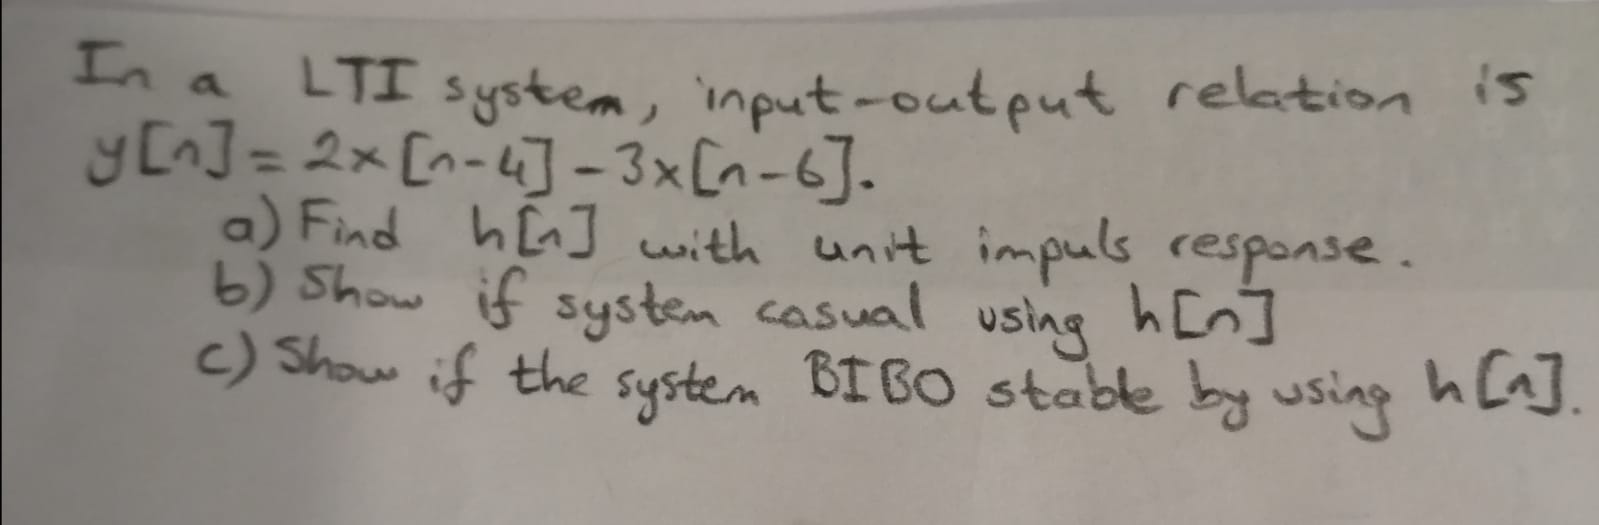 In a LTI system, input-output relation is
y[n] = 2x[n-4] - 3x[n-6].
a) Find h[n] with unit impuls response.
b) Show if system casual using h[n]
c) Show if the system BIBO stable by using h[n].